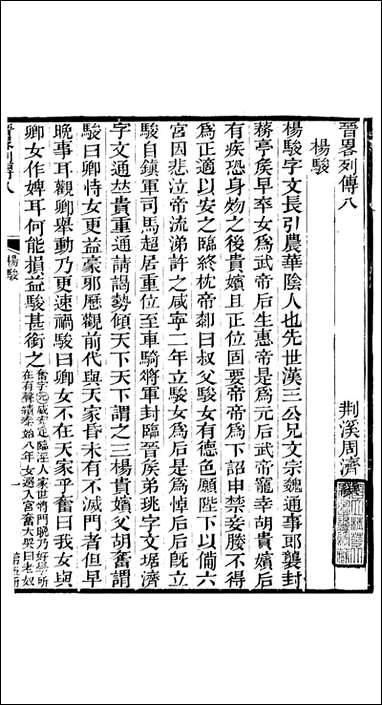 晉畧列傳八
荆溪周濟
楊駿
楊駿字文長弘農華陰人也先世漢三公兄文宗魏通事郎襲封
蓩亭矦早卒女爲武帝后生惠帝是爲元后武帝寵幸胡貴嬪后
有疾恐身妢之後貴嬪且正位固要帝帝爲下詔申禁妾媵不得
爲正適以安之臨終枕帝厀曰叔父駿女有德色願陛下以備六
宮因悲泣帝流涕許之咸寧二年立駿女爲后是爲悼后后旣立
駿自鎮軍司馬超居重位至車騎將軍封臨晉矦弟珧字文琚濟
字文通竝貴重通請謁勢傾天下天下謂之三楊貴嬪父胡奮謂
駿曰卿恃女更益豪邪歷觀前代與天家昏未有不滅門者但早
晚事耳觀卿舉動乃更速禍駿曰卿女不在天家乎奮曰我女與
卿女作婢耳何能損益駿甚銜之
奮字元威安定臨涇人家世將門晚乃好學所
在有聲績泰始八年女選入宮奮大哭曰老奴
晉畧列傳八
楊駿
一